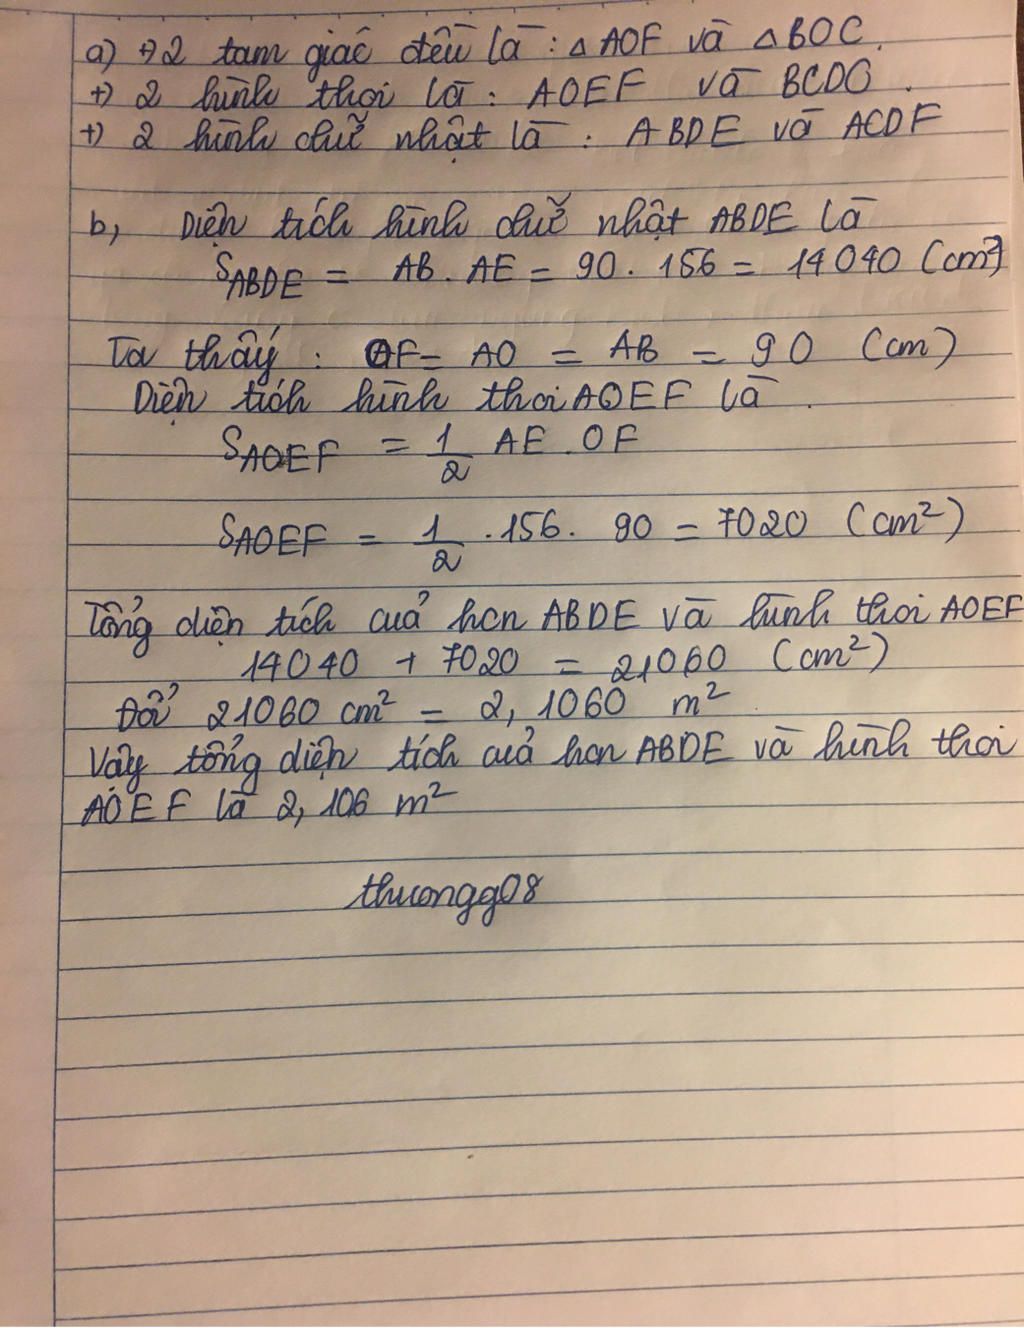 a) +) 2 tam giác đều là : △ AOF và △ BOC.
+) 2 hình thoi là : AOEF và BCDO.
+) 2 hình chữ nhật là : ABDE và ACDF
b, Diện tích hình chữ nhật ABDE là
S_ABDE = AB . AE = 90 . 156 = 14040 (cm²)
Ta thấy : OF = AO = AB = 90 (cm)
Diện tích hình thoi AOEF là .
S_AOEF = 1/2 AE . OF
S_AOEF = 1/2 . 156 . 90 = 7020 (cm²)
Tổng diện tích của hcn ABDE và hình thoi AOEF
14040 + 7020 = 21060 (cm²)
Đổi 21060 cm² = 2,1060 m²
Vậy tổng diện tích của hcn ABDE và hình thoi
AOEF là 2,106 m²
thuongg08